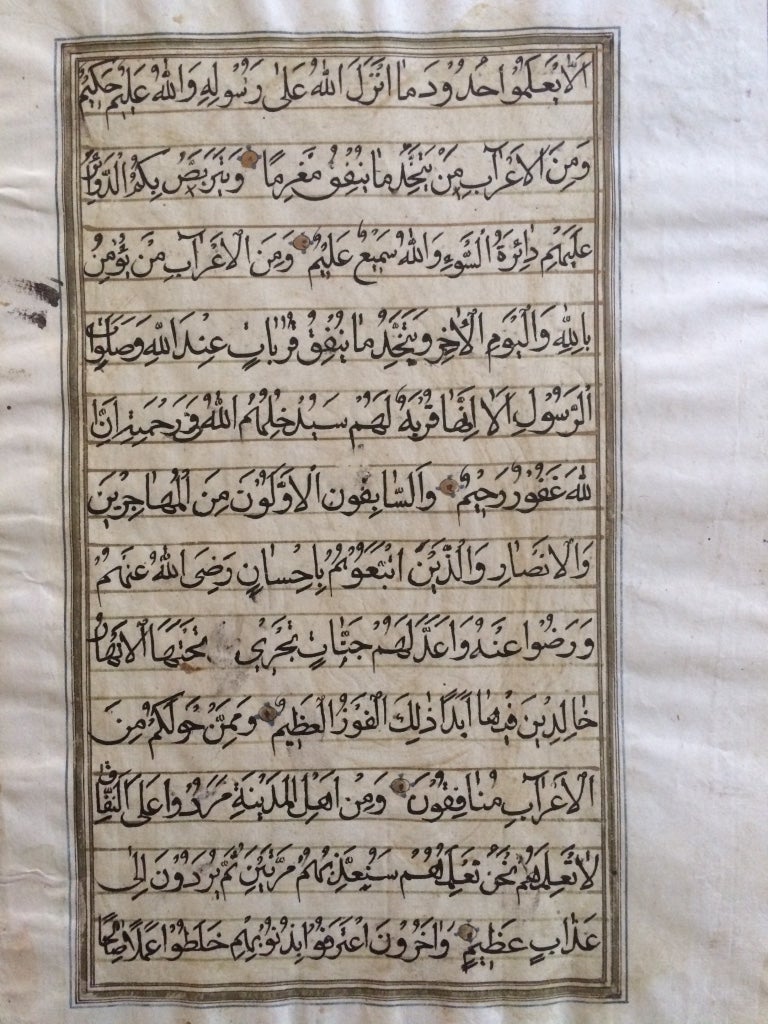 اَلَّا يَعْلَمُوا حُدُودَ مَا اَنْزَلَ اللّٰهُ عَلٰى رَسُولِهِ وَاللّٰهُ عَلِيمٌ حَكِيمٌ
وَمِنَ الْاَعْرَابِ مَنْ يَتَّخِذُ مَا يُنْفِقُ مَغْرَمًا وَيَتَرَبَّصُ بِكُمُ الدَّوَائِرَ
عَلَيْهِمْ دَائِرَةُ السَّوْءِ وَاللّٰهُ سَمِيعٌ عَلِيمٌ وَمِنَ الْاَعْرَابِ مَنْ يُؤْمِنُ
بِاللّٰهِ وَالْيَوْمِ الْاٰخِرِ وَيَتَّخِذُ مَا يُنْفِقُ قُرُبَاتٍ عِنْدَ اللّٰهِ وَصَلَوَاتِ
الرَّسُولِ اَلَا اِنَّهَا قُرْبَةٌ لَهُمْ سَيُدْخِلُهُمُ اللّٰهُ فِي رَحْمَتِهِ اِنَّ ا
للّٰهَ غَفُورٌ رَحِيمٌ وَالسَّابِقُونَ الْاَوَّلُونَ مِنَ الْمُهَاجِرِينَ
وَالْاَنْصَارِ وَالَّذِينَ اتَّبَعُوهُمْ بِاِحْسَانٍ رَضِيَ اللّٰهُ عَنْهُمْ
وَرَضُوا عَنْهُ وَاَعَدَّ لَهُمْ جَنَّاتٍ تَجْرِي تَحْتَهَا الْاَنْهَارُ
خَالِدِينَ فِيهَا اَبَدًا ذٰلِكَ الْفَوْزُ الْعَظِيمُ وَمِمَّنْ حَوْلَكُمْ مِنَ
الْاَعْرَابِ مُنَافِقُونَ وَمِنْ اَهْلِ الْمَدِينَةِ مَرَدُوا عَلَى النِّفَاقِ
لَا تَعْلَمُهُمْ نَحْنُ نَعْلَمُهُمْ سَنُعَذِّبُهُمْ مَرَّتَيْنِ ثُمَّ يُرَدُّونَ اِلٰى
عَذَابٍ عَظِيمٍ وَاٰخَرُونَ اعْتَرَفُوا بِذُنُوبِهِمْ خَلَطُوا عَمَلًا صَالِحًا